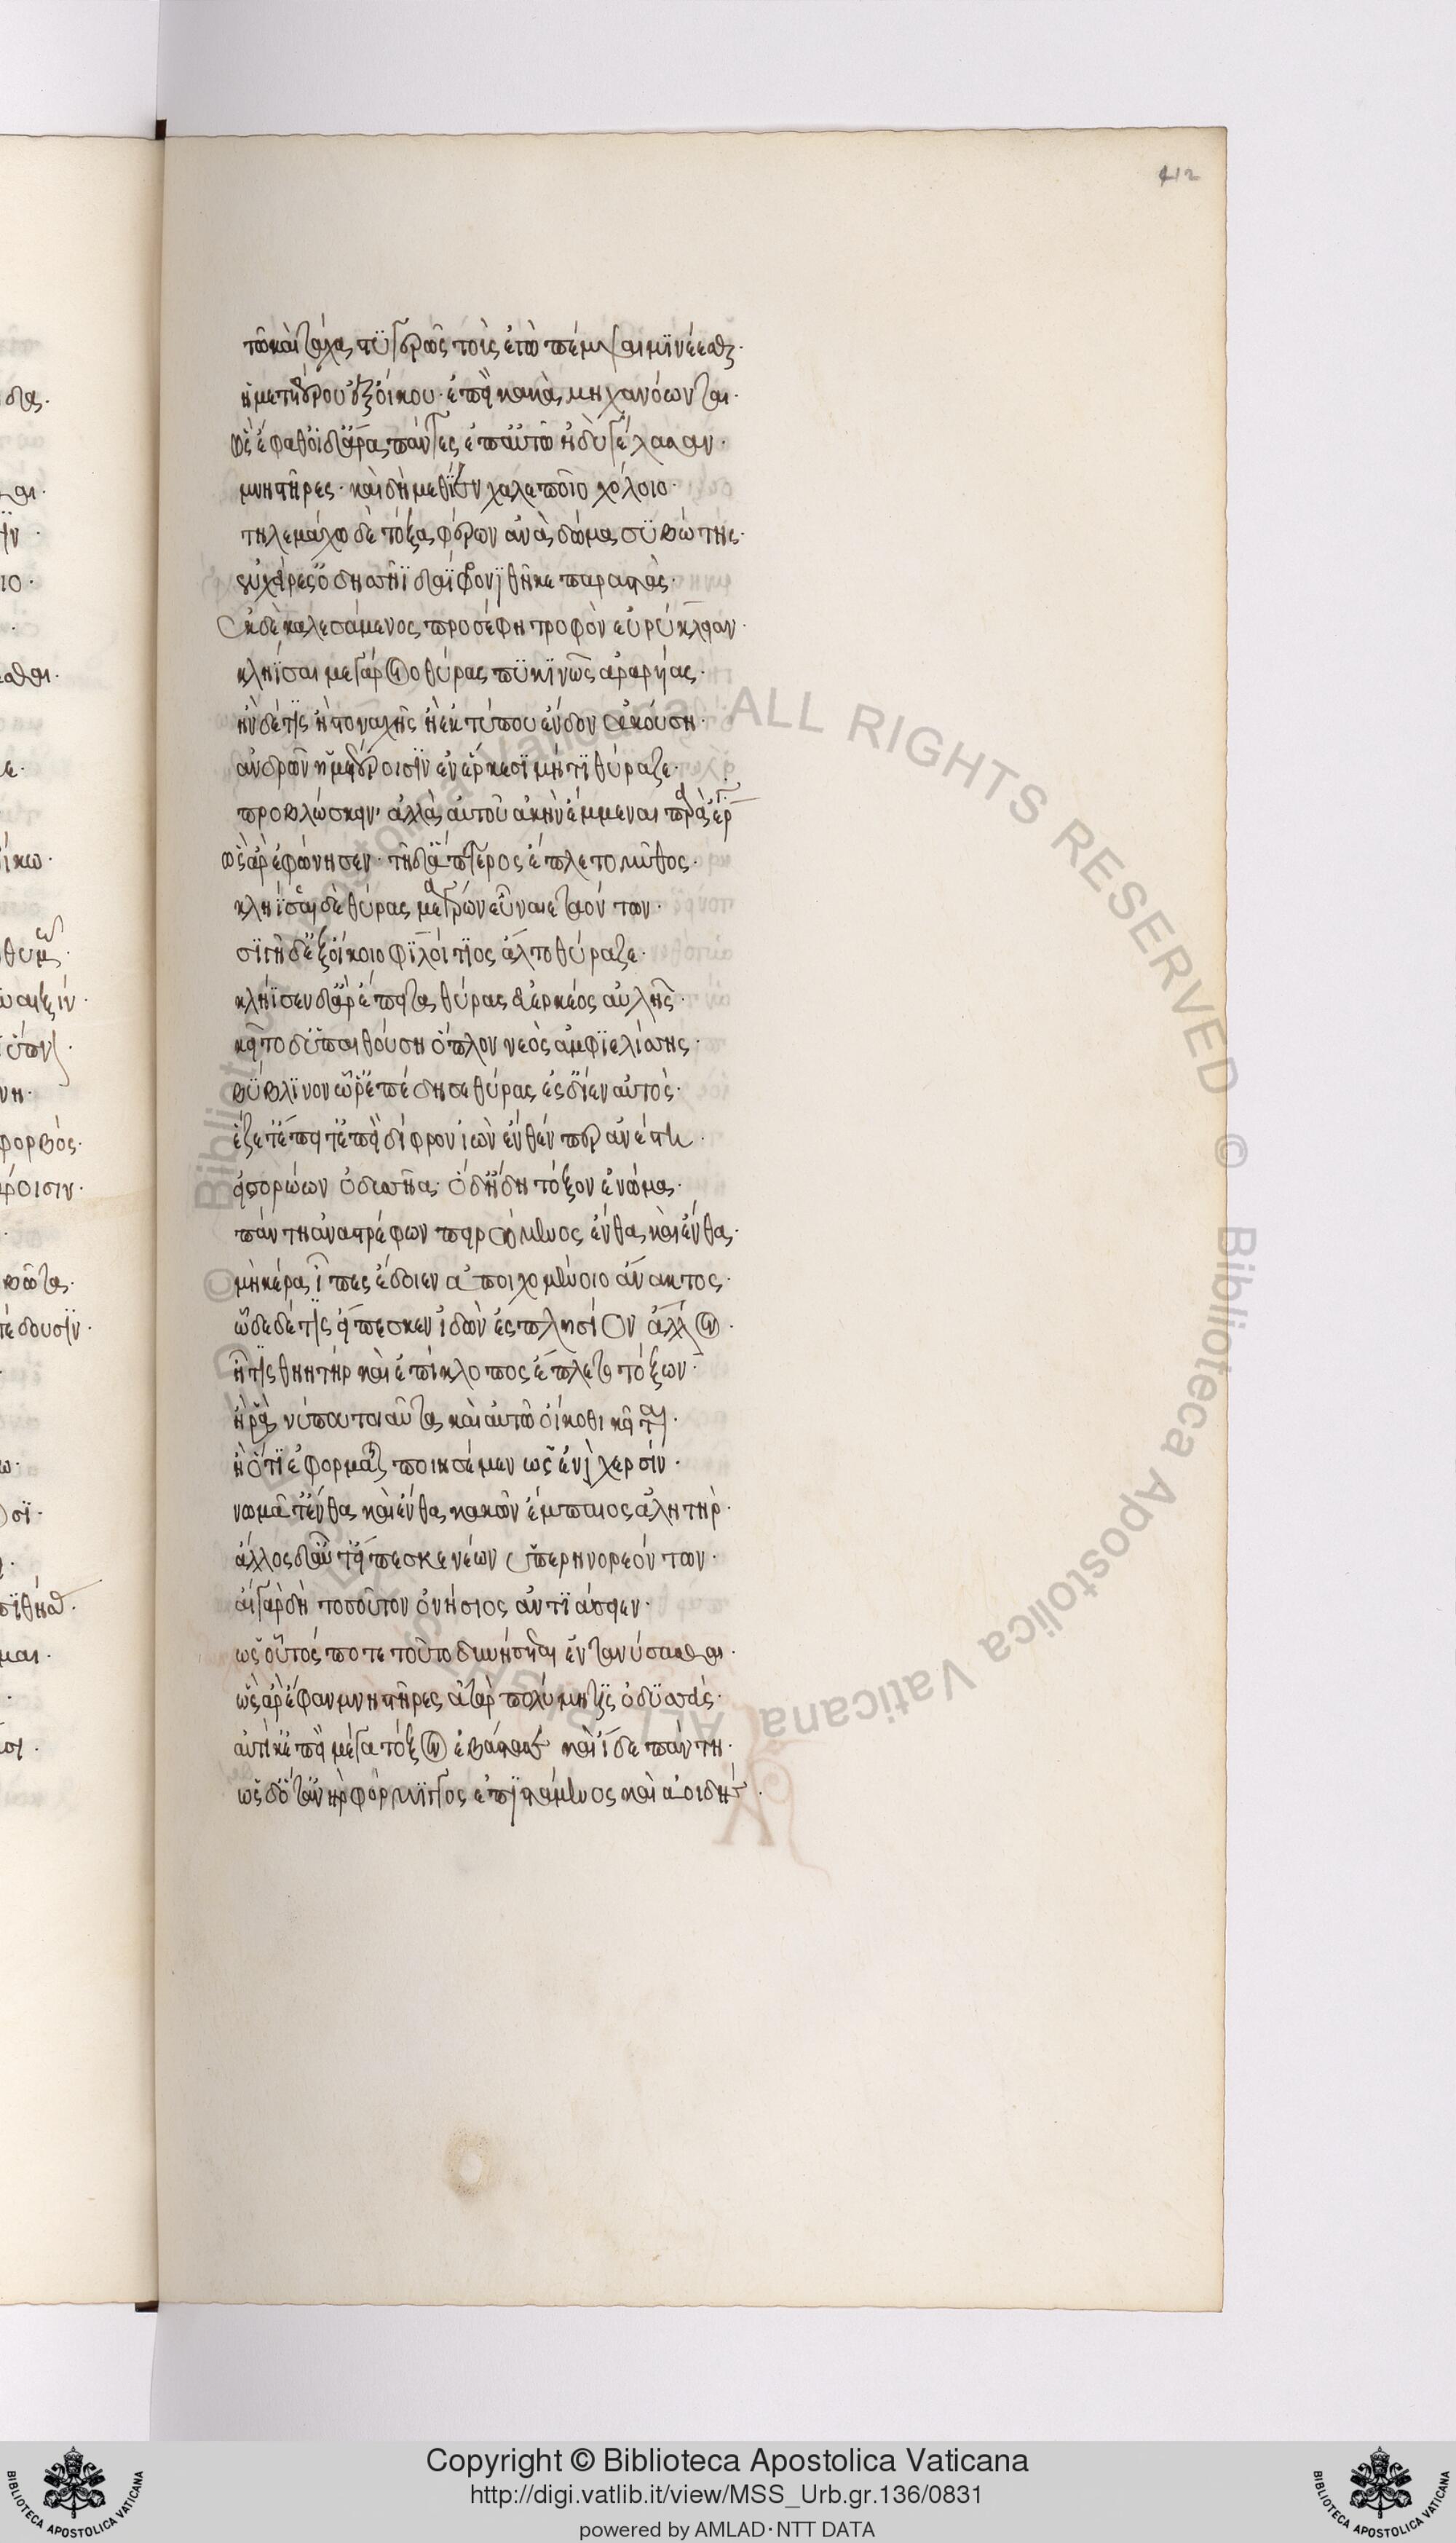 412
τῶ καὶ τάχα τϊ στυγερῶς τοῖς ἐγὼ πέμψαιμϊ νέεσθαι·
ἡμετέρου ἐξ οἴκου· ἐπεὶ κακὰ μηχανόωνται·
ὣς ἔφαθ οἱ δ ἄρα πάντες ἐπ αὐτῶ ἡδὺ γέλασαν·
μνηστῆρες· καὶ δὴ μέθϊεν χαλεποῖο χόλοιο·
τηλεμάχω δὲ τόξα φέρων ἀνὰ δῶμα συβώτης·
ἐν χείρεσσ ὀδυσῆϊ δαΐφρονϊ θῆκε παραστάς·
ἐκ δὲ καλεσάμενος προσέφη τροφὸν εὐρύκλειαν·
κληΐσαι μεγάροιο θύρας πυκϊνῶς ἀραρυίας·
ἢν δέ τϊς ἢ στοναχῆς ἠὲ κτύπου ἔνδον ἀκούση·
ἀνδρῶν ἡμετέροισϊν ἐν ἕρκεσϊ μή τϊ θύραζε·
προβλώσκειν· ἀλλ αὐτοῦ ἀκὴν ἔμμεναι παρὰ ἔργ
ὣς ἄρ ἐφώνησεν· τῆ δ ἄπτερος ἔπλετο μῦθος·
κλήϊσεν δὲ θύρας μεγάρων εὖ ναιεταόντων·
σϊγῆ δ ἐξ οἴκοιο φϊλοίτϊος ἆλτο θύραζε·
κλήϊσεν δ ἄρ ἔπειτα θύρας εὐερκέος αὐλῆς·
κεῖτο δ ὑπ αἰθούση ὅπλον νεὸς ἀμφϊελίσσης·
βύβλϊνον ὧ ῥ ἐπέδησε θύρας ἐς δ ἤϊεν αὐτός·
ἕζετ ἔπειτ ἐπὶ δίφρον ἰὼν ἔνθεν περ ἀνέστη·
εἰσορόων ὀδυσῆα· ὁ δ ἤδη τόξον ἐνώμα·
πάντη ἀναστρέφων πειρώμενος ἔνθα καὶ ἔνθα·
μὴ κέρα ἶπες ἔδοιεν ἀποιχομένοιο ἄνακτος·
ὧδε δέ τϊς εἴπεσκεν ἰδὼν ἐς πλησίον ἄλλον·
ἦ τϊς θηητὴρ καὶ ἐπίκλοπος ἔπλετο τόξων·
ἤ ῥά νύ που τοιαῦτα καὶ αὐτῶ οἴκοθι κεῖται·
ἢ ὅ γϊ ἐφορμᾶται ποιησέμεν ὡς ἐνὶ χερσίν·
νωμᾶ ἔνθα καὶ ἔνθα κακῶν ἔμπαιος ἀλήτηρ·
ἄλλος δ αὖτ εἴπεσκε νέων ὑπερηνορεόντων·
αἲ γὰρ δὴ τοσοῦτον ὀνήσιος ἀντϊάσειεν·
ὡς οὗτός ποτε τοῦτο δυνήσεται ἐντανύσασθαι·
ὣς ἄρ ἔφαν μνηστῆρες ἀτὰρ πολύμητϊς ὀδυσσεύς·
αὐτίκ ἐπεὶ μέγα τόξον ἐβάστασε καὶ ἴδε πάντη·
ὡς δ ὅτ ἀνὴρ φόρμϊγγος ἐπϊστάμενος καὶ ἀοιδῆς·
Copyright © Biblioteca Apostolica Vaticana
http://digi.vatlib.it/view/MSS_Urb.gr.136/0831
powered by AMLAD·NTT DATA